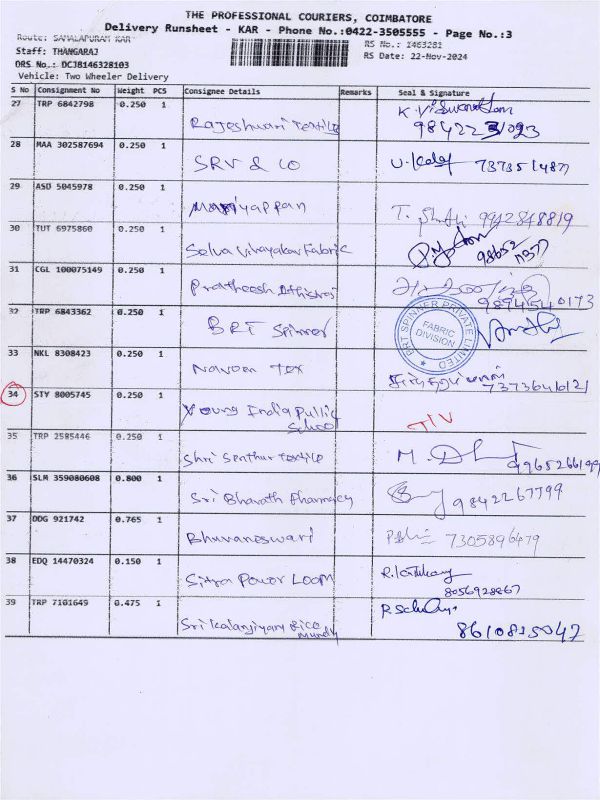 THE PROFESSIONAL COURIERS, COIMBATORE
Delivery Runsheet - KAR - Phone No.:0422-3505555 - Page No.:3
Route: SAMALAPURAM KAR
RS No.: 1463281
Staff: THANGARAJ
RS Date: 22-Nov-2024
DRS No.: DCJ8146328103
Vehicle: Two Wheeler Delivery
S No Consignment No Weight PCS Consignee Details Remarks Seal & Signature
27 TRP 6842798 0.250 1 Rajeshwari Textile K. Viswanathan
28 MAA 302587694 0.250 1 SRV & CO
29 ASD 5045978 0.250 1 Mariyappan T. 9942848819
30 TUT 6975860 0.250 1 Selva Vinayakar Fabric
31 CGL 100075149 0.250 1 9894540173
32 TRP 6843362 0.250 1 BRT Spinner BRT SPINNER PRIVATE LIMITED FABRIC DIVISION
33 NKL 8308423 0.250 1 Naveen Tex 7373646121
34 STY 8005745 0.250 1 Young India Pullic School
35 TRP 2585446 0.250 1 Shri Senthur Textile M.
36 SLM 359080608 0.800 1 Sri Bharath Pharmacy 9842267799
37 DDG 921742 0.765 1 Bhuvaneswari 7305896479
38 EDQ 14470324 0.150 1 Sitra Power LOOM 8056928867
39 TRP 7101649 0.475 1 Sri Kalanjiyam Rice Mundy 8610815047